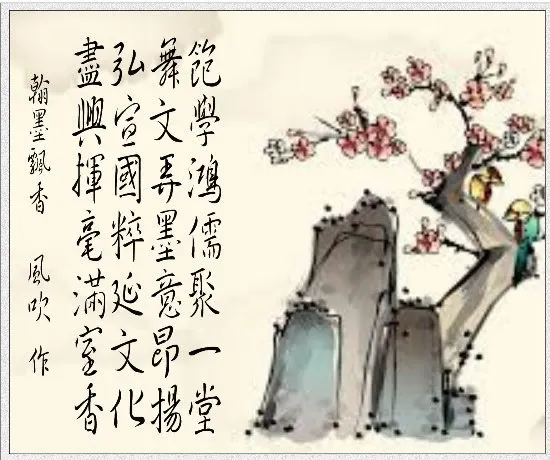 飽學鴻儒聚一堂
舞文弄墨意昂揚
弘宣國粹延文化
盡興揮毫滿室香
翰墨飄香 風吹 作